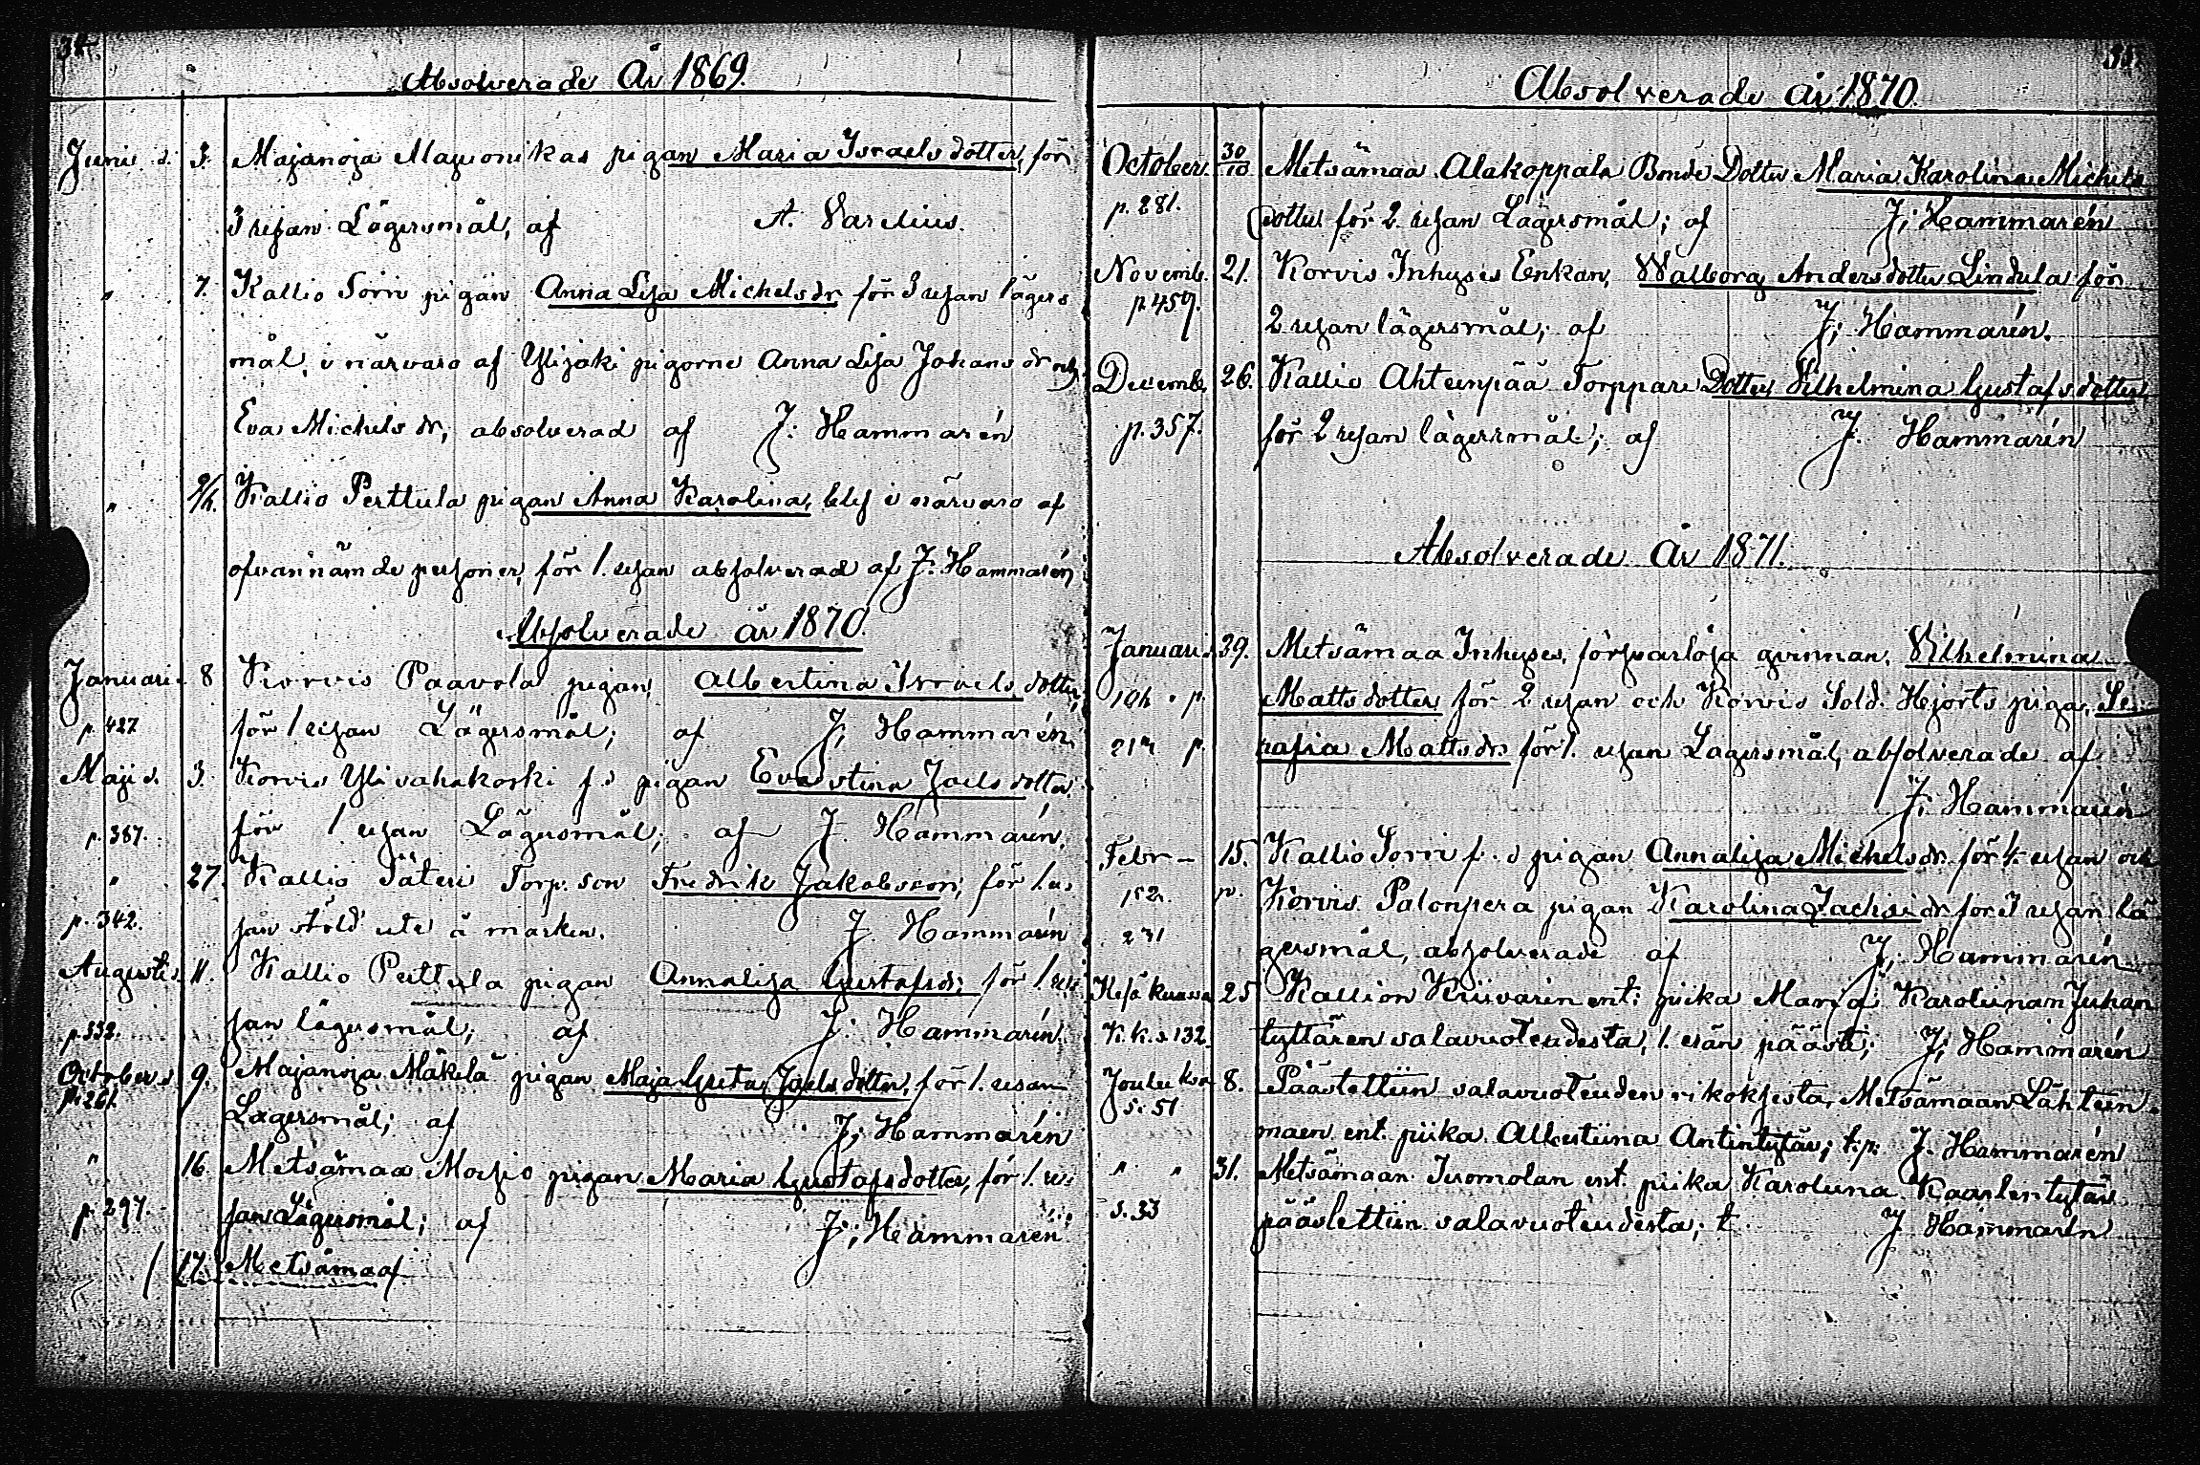 34.
Absolverade År 1869.
Juni d. 3. Majanoja Maquonikas pigan Maria Israels dotter, för
3 resan Lägersmål, af A. Varelius.
" 7. Kallio Sorri pigan Anna Lisa Michelsdr för 3 resan lägers
mål, i närvaro af Ylijoki pigorne Anna Lisa Johansdr och
Eva Michelsdr, absolverad af J. Hammarén
" Kallio Perttula pigan Anna Karolina, blef i närvaro af
ofvannämde personer, för 1. resan absolverad af J. Hammarén
Absolverade år 1870.
Januari 8 Korvis Paavola pigan Albertina Israels dotter,
p. 427 för 1 resan Lägersmål; af J; Hammarén
Maji d. 3. Korvis Ylivahakoski f.d pigan Eva Stina Joels dotter
p. 387. för 1 resan Lägersmål; af J Hammarén.
" 27. Kallio Päteri Torp. son Fredrik Jakobsson, för 1. re
p. 342. san stöld ute å marken. J. Hammarén
Augusti 11. Kallio Perttula pigan Annalisa Gustafsdr; för 1. re
p. 332. san lägersmål; af J; Hammarén.
October d 9. Majanoja Mäkelä pigan Maja Greta Joels dotter, för 1. resan
p. 261. Lägersmål; af J; Hammarén
" 16. Metsämaa Moisio pigan Maria Gustafsdotter, för 1. re
p. 297. san Lägersmål; af J; Hammarén
17. Metsämaa
35.
Absolverade år 1870.
October. 30/10 Metsämaa Alakoppala Bonde Dotter Maria Karolina Michels
p. 281. dotter för 2. resan Lägersmål; af J; Hammarén
Novemb. 21. Korvis Inhyses Enkan, Walborg Andersdotter Lindula för
p. 459. 2 resan lägersmål; af J; Hammarén.
Decemb. 26. Kallio Ahteenpää Torppare Dotter Vilhelmina Gustafsdotter
p. 357. för 2 resan lägersmål; af J. Hammarén
Absolverade År 1871.
Januari 39. Metsämaa Inhyses, försvarlösa qvinnan, Vilhelmina
p. Mattsdotter för 2 resan och Korvis Sold. Hjorts piga, Se-
p. rafia Mattsdr. för 1. resan Lagersmål, absolverade af
J; Hammarén
Febr – 15. Kallio Sorri f. d pigan Annalisa Michelsdr. för 4. resan och
152. p. Korvis Palonpera pigan Karolina Zachrisdr för 3 resan lä
231 gersmål, absolverade af J; Hammarén
Kesä kuussa 25 Kallion Kriivarin ent; piika Maria Karoliinan Juhan
K.k.s. 132. tyttären salavuoteudesta, 1. erän päästi; J; Hammarén
Joulu k:a 8. Päästettiin salavuoteuden rikoksesta, Metsämaan Lähteen
s. 51 maen ent. piika Albertiina Antintytär; t:p: J. Hammarén
" " 31. Metsämaan Tuomolan ent. piika Karoliina Kaarlentytär
s. 33 päästettiin salavuoteudesta; t. J Hammarén